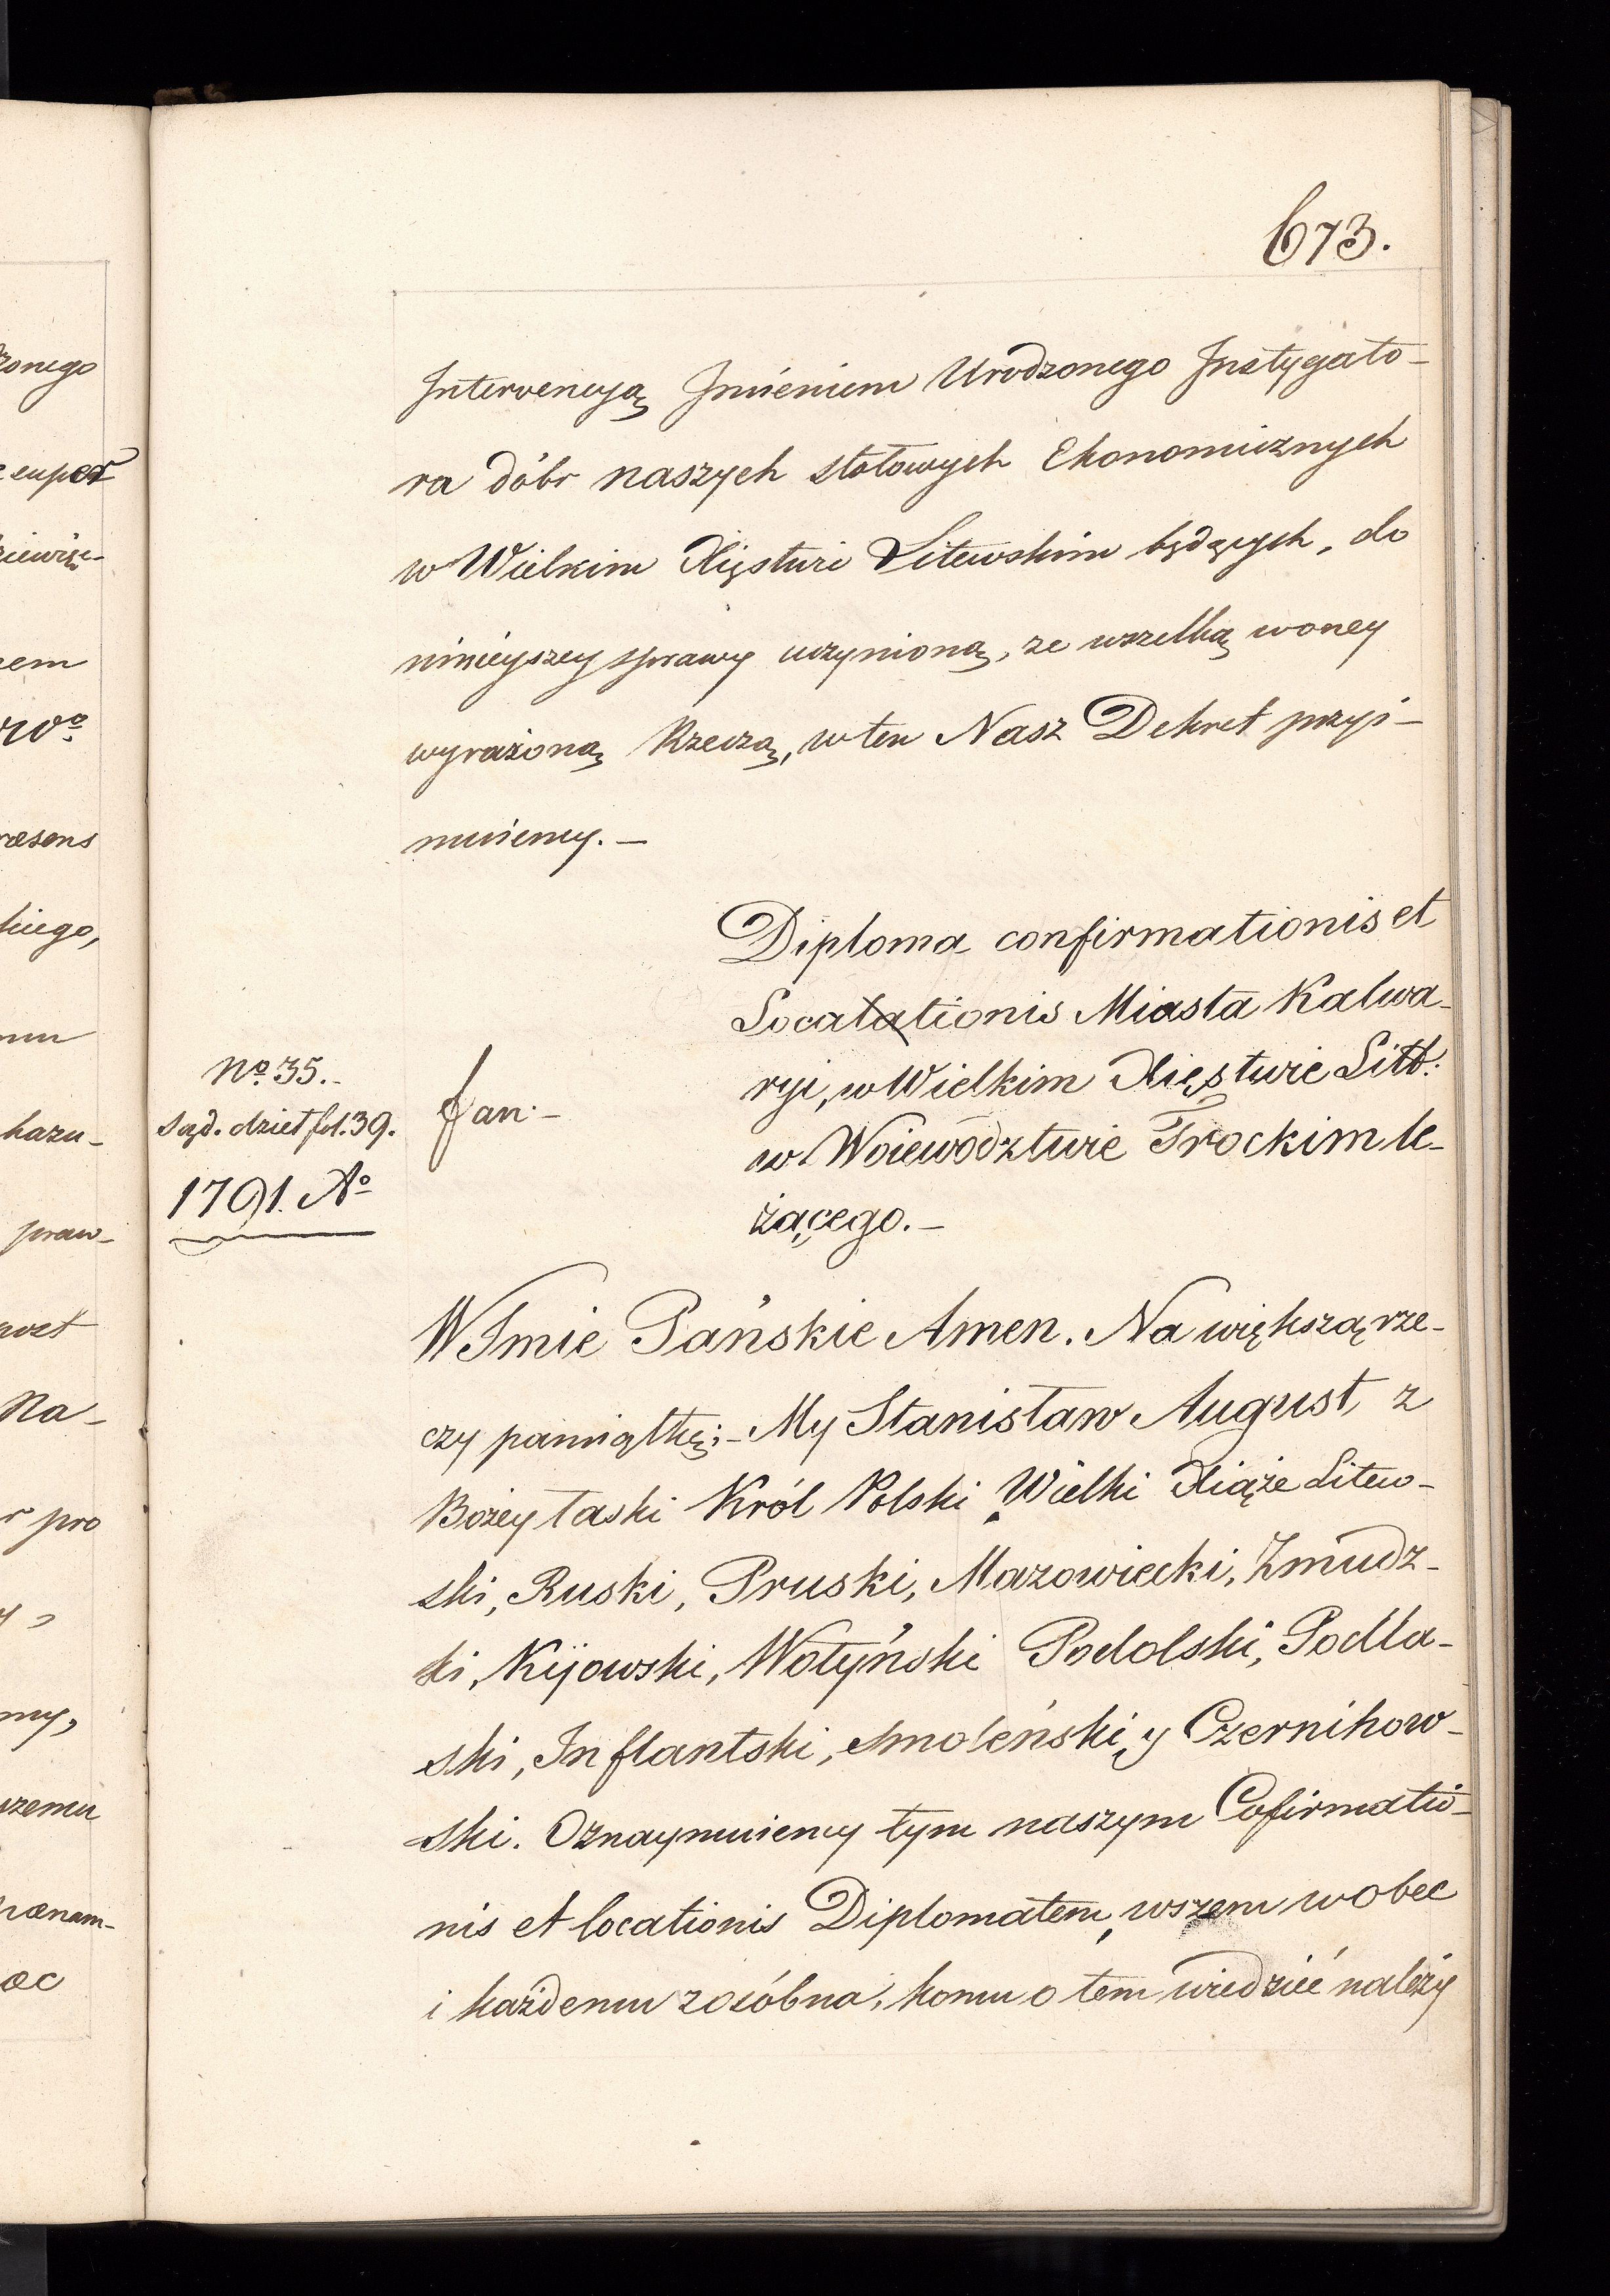 673.
Intervencyą Jmieniem Urodzonego Jnstygato-
ra dóbr naszych stołowych Ekonomicznych
w Wielkim Xięstwie Litewskim będących, do
ninieyszey sprawy uczynioną, ze wszelką w oney
wyrażoną Rzeczą, w ten Nasz Dekret przyi-
muiemy. -
Diploma confirmationis et
Locatationis Miasta Kalwa-
ryi, w Wielkim Xięstwie Litt:
w Woiewództwie Trockim le-
żącego. -
No. 35.-
Sąd. dzieł fol. 39.
1791. Ao
Jan: -
W Imie Pańskie Amen. Na większą rze-
czy pamiątkę; - My Stanisław August, z
Bożey łaski Król Polski Wielki Xiąże Litew-
ski, Ruski, Pruski, Mazowiecki, Żmudz-
ki, Kijowski, Wołyński Podolski, Podla-
ski, Inflantski, Smoleński, y Czernihow-
ski. Oznaymuiemy tym naszym Cofirmatio-
nis et locationis Diplomatem, wszem wobec
i każdemu zosóbna, komu o tem wiedzieć należy
zonego
super
nem
vo
raesens
kiego,
kazu-
praw-
Na-
r pro
my,
szemu